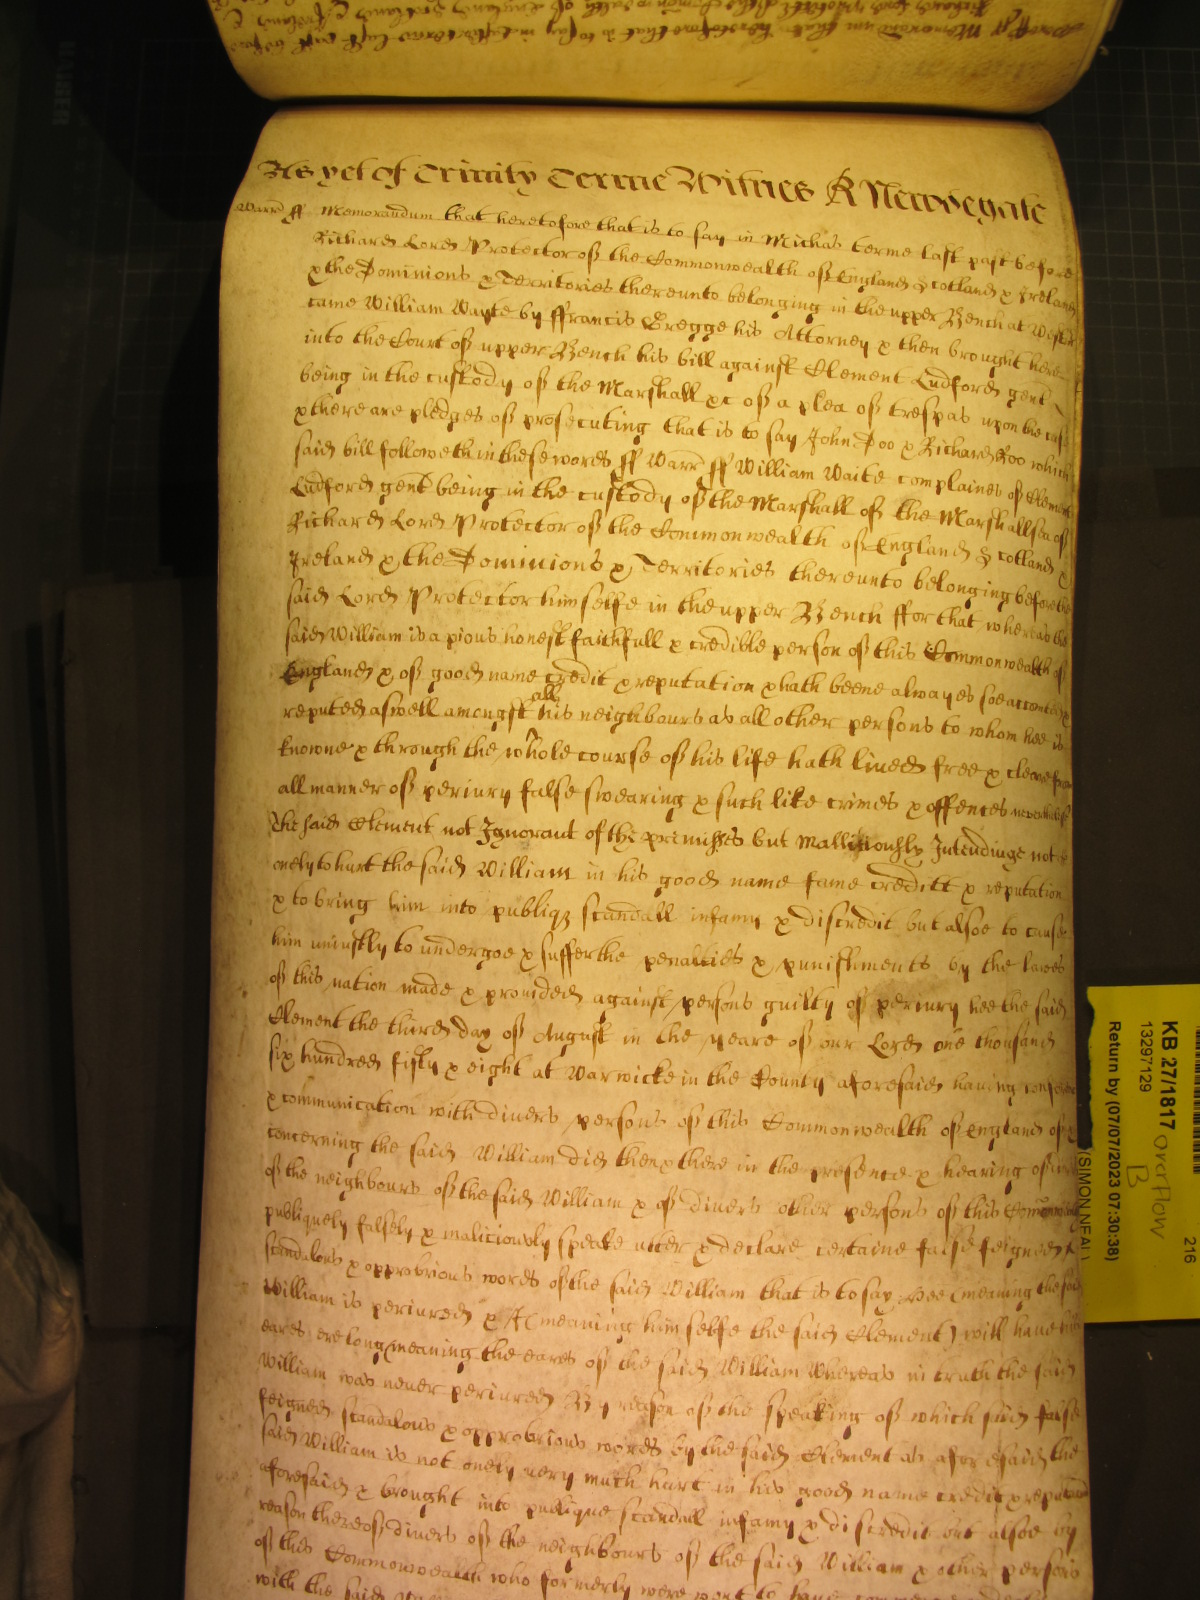 As yet of Trinity Terme Witnes R Newdegate
Warr ff Memorandum that heretofore that is to say in Michas terme last past before
Richard Lord Protector of the Commonwealth of England Scotland & Ireland
& the Dominions & Territories thereunto belonging in the upper Bench at Westmr
came William Wayte by ffrancis Gregge his Attorney & then brought here
into the Court of upper Bench his bill against Clement Ludford gent
being in the custody of the Marshall &c of a plea of trespas upon the case
& there are pledges of prosecuting that is to say John Doo & Richard Roo which
said bill followeth in these words ff Warr ff William Waite complaines of Clement
Ludford gent being in the custody of the Marshall of the Marshallsea of
Richard Lord Protector of the Commonwealth of England Scotland &
Ireland & the Dominions & Territories thereunto belonging before the
said Lord Protector himselfe in the upper Bench ffor that whereas the
said William is a pious honest faithfull & credible person of this Commonwealth of
England & of good name credit & reputation & hath beene alwayes soe accounted &
reputed aswell amongst all his neighbours as all other persons to whom hee is
knowne & through the whole course of his life hath lived free & cleare from
all manner of periury false swearing & such like crimes & offences neverthelesse
the said Clement not Ignorant of the premisses but Mallitiously Intendinge not
onely to hurt the said William in his good name fame creditt & reputation
& to bring him into publiq scandall infamy & discredit but alsoe to cause
him uniustly to undergoe & suffer the penalties & punishments by the lawes
of this nation made & provided against persons guilty of periury hee the said
Clement the third day of August in the yeare of our Lord one thousand
six hundred fifty & eight at Warwicke in the County aforesaid having conference
& communication with divers persons of this Commonwealth of England of &
concerning the said William did then & there in the presence & hearing of divers
of the neighbours of the said William & of divers other persons of this Commonwealth
publiquely falsely & maliciously speake utter & declare certaine false feigned
scandalous & opprobrious words of the said William that is to say hee (meaning the said
William is periured & I (meaning himselfe the said Clement) will have his
eares ere long meaning the eares of the said William Whereas in truth the said
William was never periured By reason of the speaking of which said false
feigned scandalous & opprobrious words by the said Clement as aforesaid the
said William is not onely very much hurt in his good name credit & reputation
aforesaid & brought into publique scandall infamy & discredit but alsoe by
reason thereof divers of the neighbours of the said William & other persons
of this Commonwealth who formerly were wont to have
with the said
KB 27/1817 overflow B
13297129
Return by (07/07/2023 07:30:38)
(SIMON NEAL)
216